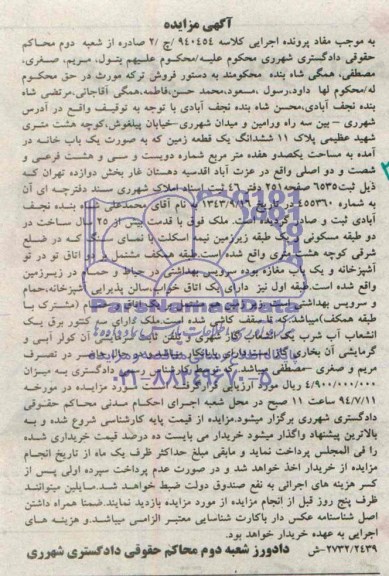 آگهی مزایده
به موجب مفاد پرونده اجرایی کلاسه ۹۴۰۴۵۴ /ج /۲ صادره از شعبه دوم محاکم
حقوقی دادگستری شهرری محکوم علیه/محکوم علیهم بتول، مریم، صغری،
مصطفی، همگی شاه پنده محکومند به دستور فروش ترکه مورث در حق محکوم
له/محکوم لها داود، رسول، مسعود، محمد حسن، فاطمه، همگی آقاجانی، مرتضی شاه
بنده نجف آبادی، محسن شاه بنده نجف آبادی با توجه به توقیف واقع در آدرس
شهرری – بین سه راه ورامین و میدان شهرری – خیابان پیلغوش، کوچه هشت متری
شهید عظیمی پلاک ۱۱ ششدانگ یک قطعه زمین که به صورت یک باب خانه در
آمده به مساحت یکصدو هفده متر مربع شماره دویست و سی و هشت فرعی و
شصت و دو اصلی واقع در عزت آباد اقدسیه دهستان غار بخش دوازده تهران که
ذیل ثبت ۶۵۳۵ صفحه ۲۵۱ دفتر ۴۶ ثبت اسناد املاک شهرری سند دفترچه ای آن
به شماره ۴۵۵۳۶۰ در تاریخ ۱۳۴۳/۹/۲۶ به نام آقای محمدعلی شاه بنده نجف
آبادی ثبت و صادر گردیده است. ملک فوق با قدمت بیش از ۲۵ سال ساخت در
دو طبقه مسکونی و یک طبقه زیرزمین نیمه اسکلت با نمای سنگ که در ضلع
شرقی کوچه هشت متری واقع شده است. طبقه همکف مشتمل بر دو اتاق تو در تو
آشپزخانه و یک باب مغازه بوده سرویس بهداشتی در حیاط و حمام در زیرزمین
واقع شده است. طبقه اول نیز دارای یک اتاق خواب، سالن پذیرایی آشپزخانه، حمام
و سرویس بهداشتی است. زیرزمین هم مشتمل بر یک اتاق و حمام (مشترک با
طبقه همکف) میباشد که تا سقف کاشی شده است. ملک دارای سه کنتور برق یک
انشعاب آب شرب یک انشعاب گاز شهری و تلفن ثابت
گرمایشی آن بخاری گاز سوز در حال حاضر در تصرف
مریم و صغری – مصطفی میباشد که توسط کارشناس رسمی دادگستری به میزان
۴/۹۰۰/۰۰۰/۰۰۰ ریال مورد ارزیابی قرار گرفته مورد مزایده در مورخه
۹۴/۷/۱۱ ساعت ۱۱ صبح در محل شعبه اجرای احکام مدنی محاکم حقوقی
دادگستری شهرری برگزار میشود. مزایده از قیمت پایه کارشناسی شروع شده و به
بالاترین پیشنهاد واگذار میشود خریدار می بایست ده درصد قیمت خریداری شده
را فی المجلس پرداخت نماید و مابقی مبلغ حداکثر ظرف یک ماه از تاریخ انجام
مزایده از خریدار اخذ خواهد شد و در صورت عدم پرداخت سپرده اولی پس از
کسر هزینه های اجرائی به نفع صندوق دولت ضبط خواهد شد. مایلین میتوانند
ظرف پنج روز قبل از انجام مزایده از مورد مزایده بازدید نمایند. ضمنا همراه داشتن
اصل شناسنامه عکس دار یا کارت شناسایی معتبر الزامی میباشد. و هزینه های
اجرایی به عهده خریدار خواهد بود.
۲۷۳۲/۲۴۳۹–ش دادورز شعبه دوم محاکم حقوقی دادگستری شهرری
ParsNamadData
۰۲۱-۸۸۳۴۹۶۷۰-۵